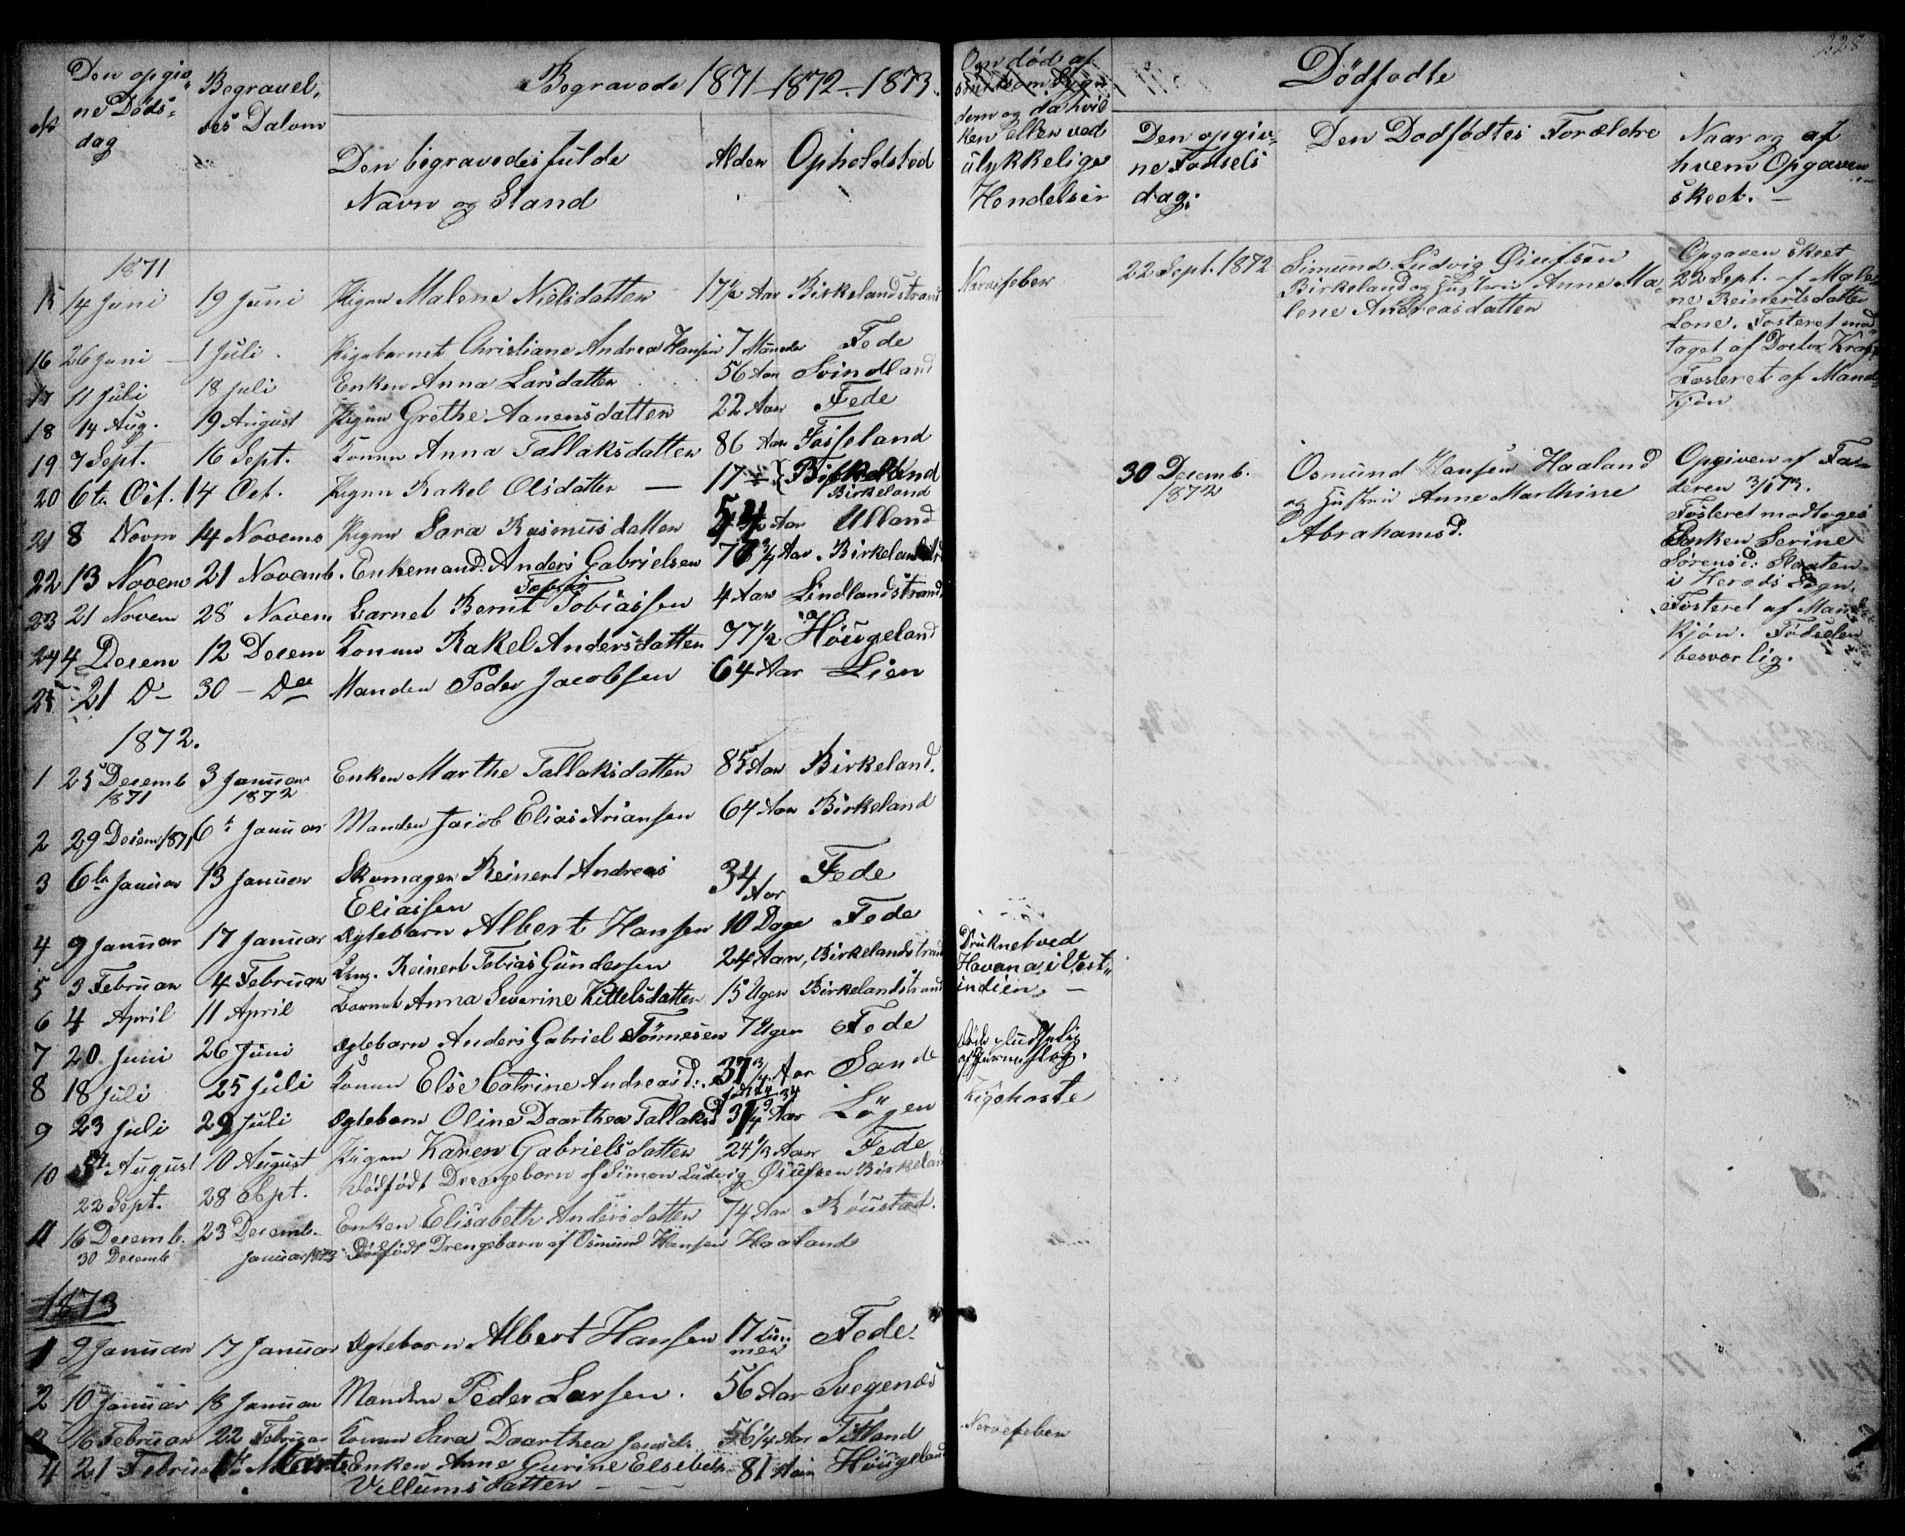 228
Begravede 1871 - 1872 - 1873.
Den opgiv
ne Døds-
dag
Begravel,
ses Datom
Den begravedes fulde
Navn og Stand
Alder
Opholdsted
1871
15 14 Juni 19 Juni Pigen Malene Nielsdatter 17½ Aar Birkelandstrand
16 26 Juni 1 Juli. Pigebarnet Christiane Andrea Hansen 7 Maaneder Fede
17 11 Juli 18 Juli Enken Anna Larsdatter 56 Aar Svindland
18 14 Aug. 19 August Pigen Grethe Aanensdatter 22 Aar Fede
19 7 Sept. 16 Sept. Konen Anna Tallaksdatter 86 Aar Fosseland
20 6te Oct. 14 Oct. Pigen Rakel Olsdatter — 17 Birkeland
Birkeland
21 8 Novm 14 Novems Pigen Sara Rasmusdatter Aar Ulland
22 13 Novem 21 Novemb. Enkemand. Anders Gabrielsen Aar Birkeland
Tobias
23 21 Novem 28 Novem Barnet Bernt Tobiassen 4 Aar Lindlandstrand
24 4 Decem 12 Decem Konen Rakel Andersdatter 77½ Høugeland
25 21 D- 30 - De Manden Peder Jacobsen 64 Aar Lien
1872.
1 25 Decemb 3 Januar Enken Marthe Tallaksdatter 85 Aar Birkeland.
1871 1872
2 29 Decem 1871 6te Januar Manden Jacob Elias Ariansen 64 Aar Birkeland
3 6te Januar 13 Januar Skomager Reinert Andreas 34 Fede
Eliassen Aar
4 9 Januar 17 Januar Ægtebarn Albert Hansen 10 Dage Fede
5 3 Februar 4 Februar Ung. Reinert Tobias Gundersen 24 Aar, Birkelandstrand
6 4 April 11 April Barnet Anna Severine Kittelsdatter 15 Uger Birkelandstrand
7 20 Juni 26 Juni Ægtebarn Anders Gabriel Tønnesen 7 Uger Fede
8 18 Juli 25 Juli Konen Else Catrine Andreasd. 37¾ Aar Sande
9 23 Juli 29 Juli Ægtebarn Oline Daarthea Tallaksd Aar Løgen
10 5te August 10 August Pigen Karen Gabrielsdatter 24⅓ Aar Fede
22 Sept. 28 Sept. Dødfødt Drengebarn af Simon Ludvig Øiufsen Birkeland
11 16 Decemb. 23 Decemb. Enken Elisabeth Andersdatter 74 Aar Røustad.
30 Decemb Januar 1873 Dødfødt Drengebarn af Osmund Hansen Haaland
1873
1 9 Januar 17 Januar Ægtebarn Albert Hansen 17 Tim- Fede.
mer
2 10 Januar 18 Januar Manden Peder Larsen. 56 Aar Svegenæs
16 Februar 22 Februar Konen Sara Daarthea 56¼ Aar Titland
4 21 Marts Enken Anne Gurine Elsebeth 81 Aar Høugeland
Villumsdatter
Om død af
dom og da hvil
ken eller ved
ulykkelige
Hendelser
Nervefeber
Druknet ved
Havana i Vest-
indien. —
Kighoste
Nervefeber
Dødfødte
Den opgiv-
ne Fødsels
dag.
Den Dødfødtes Forældre
Naar og af
hvem Opgaven
skeet. —
22 Sept. 1872
Simund Ludvig Øiufsen
Birkeland og Hustru Anne Ma-
lene Andreasdatter
Opgaven skeet
22 Sept. af Male
ne Reinertsdatter
Lone. Fosteret mod
taget af Doctor
Fosteret af Mand
Kjøn
30 Decemb.
1872
Osmund Hansen Haaland
og Hustru Anne Marthine
Abrahamsd.
Opgiven af Fa-
deren 3/1 73.
Fosteret modtoges
Enken Serine
Sørensd:
i Herads Sogn.
Fosteret af Mand-
kjøn. Fødselen
besværlig.